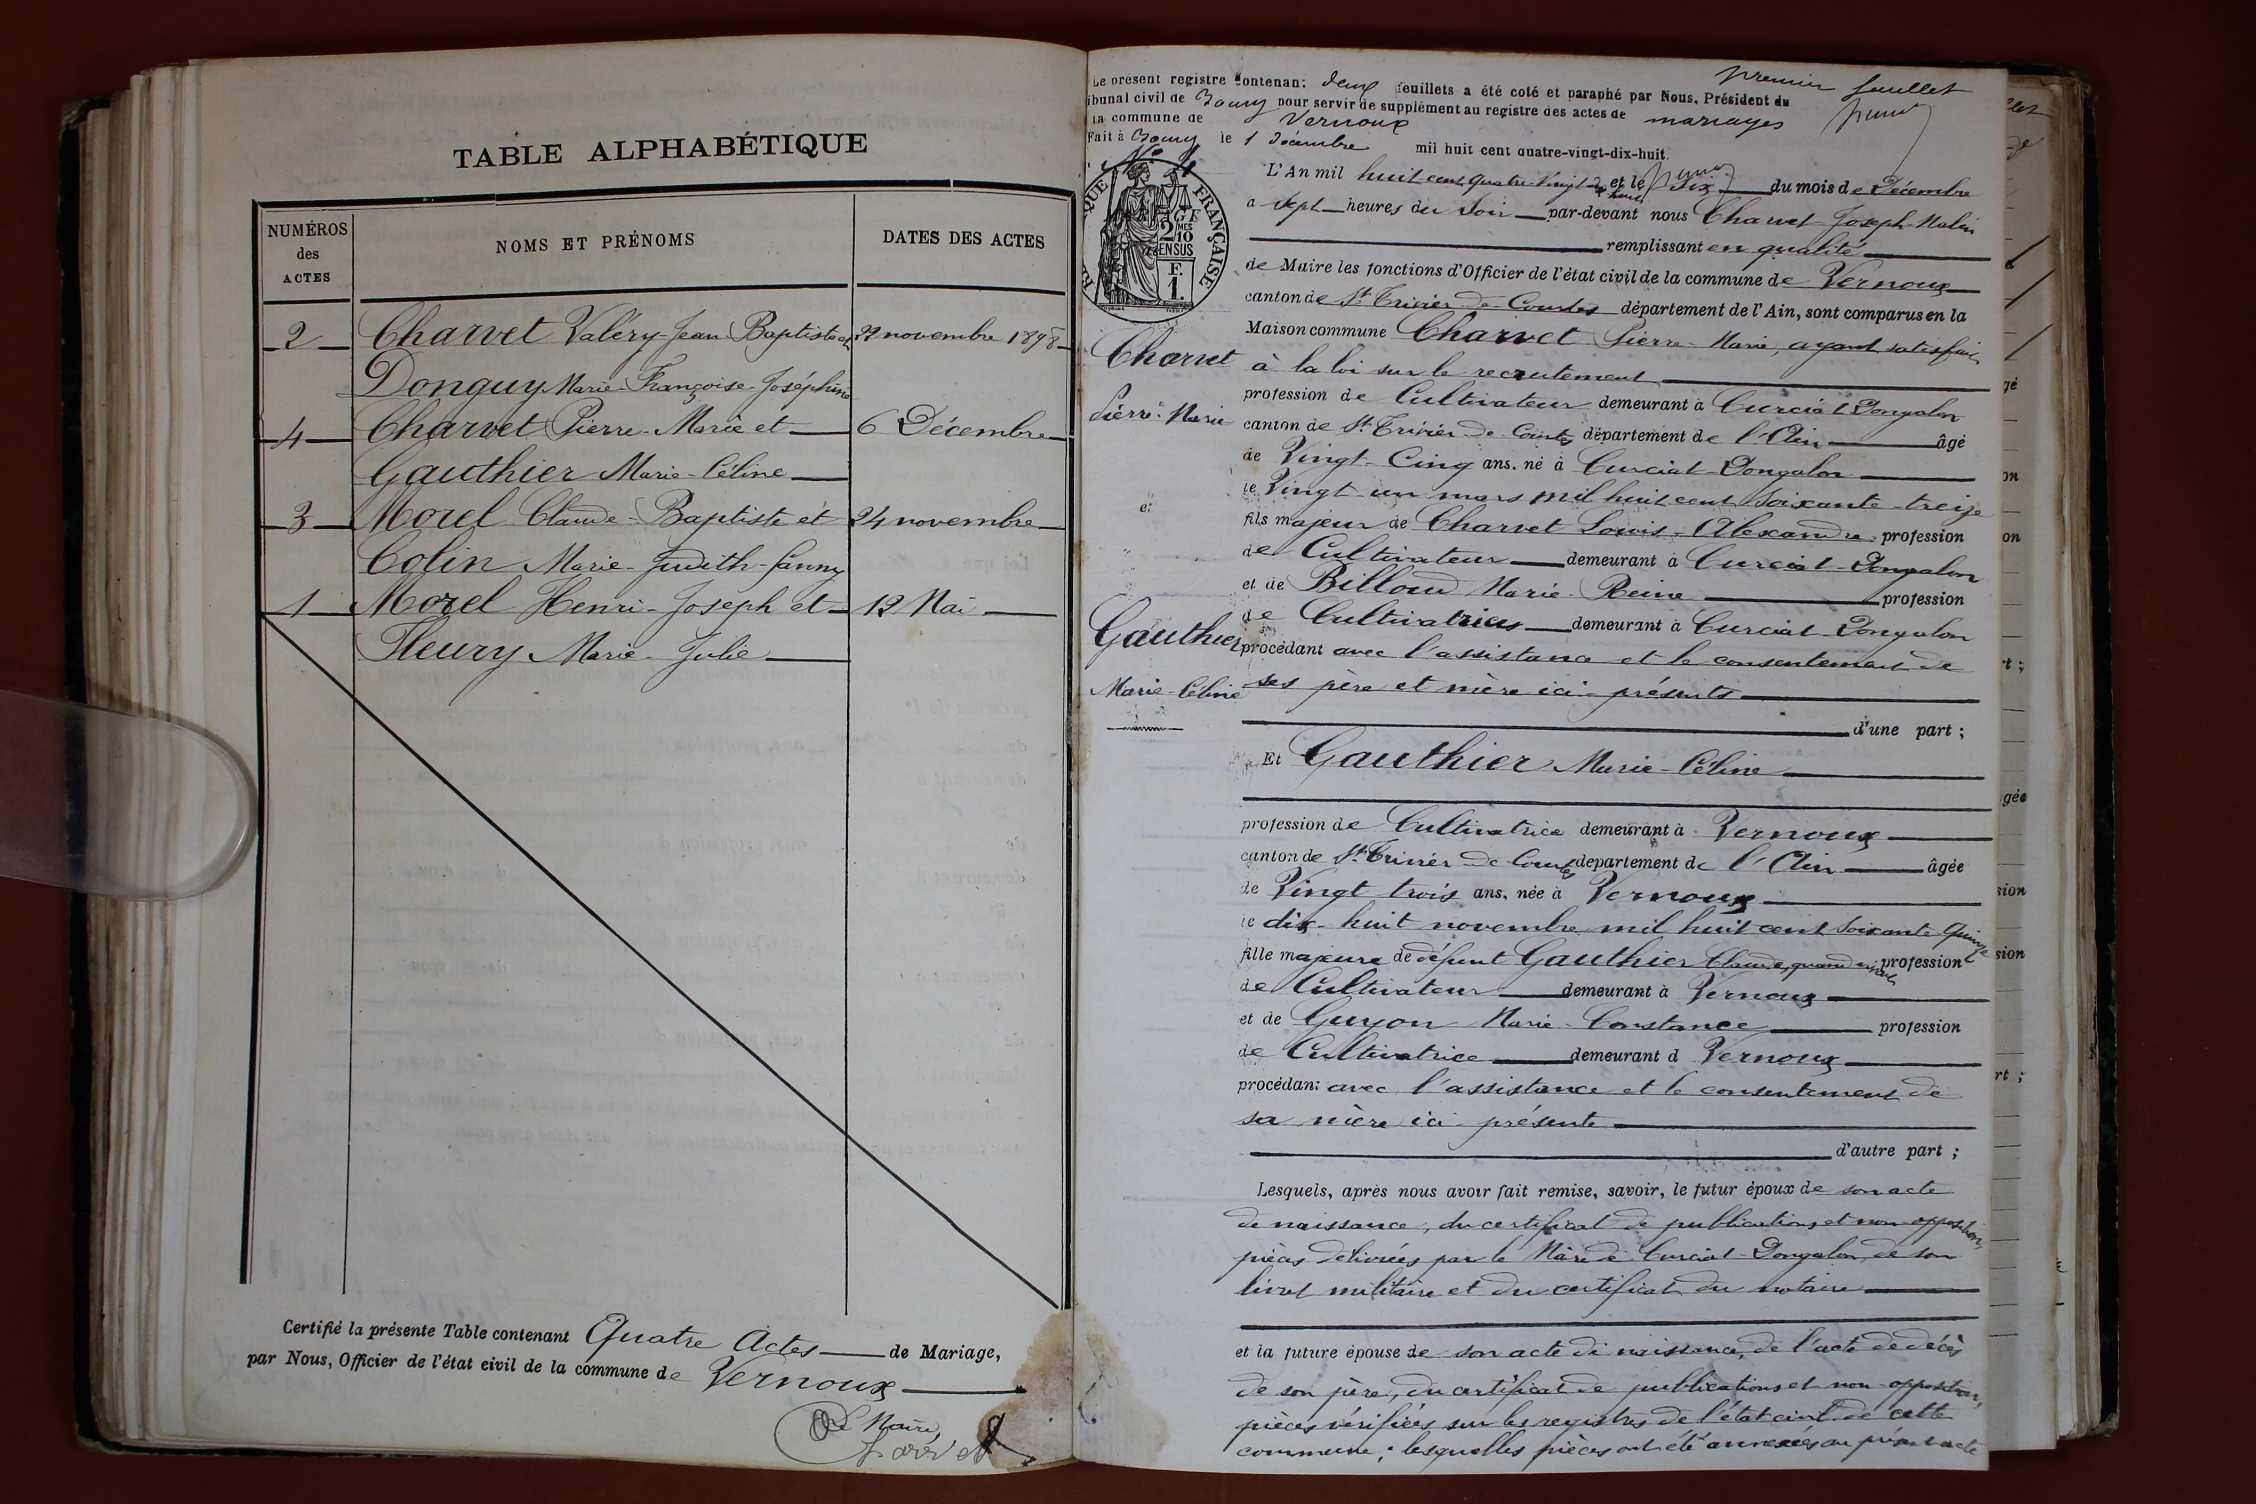 TABLE ALPHABÉTIQUE
NUMÉROS
des
ACTES
NOMS ET PRÉNOMS
DATES DES ACTES
2 Charvet Valéry-Jean-Baptiste et 29 novembre 1898
Donguy Marie-Françoise-Joséphine
4 Charvet Pierre-Marie et 6 Décembre
Gauthier Marie-Céline
3 Morel Claude-Baptiste et 24 novembre
Colin Marie-Judith-Fanny
1 Morel Henri-Joseph et 12 Mai
Fleury Marie-Julie
Certifié la présente Table contenant Quatre Actes de Mariage,
par Nous, Officier de l'état civil de la commune de Vernoux
Le Maire,
premier feuillet
Le présent registre contenant deux feuillets a été coté et paraphé par Nous, Président du
ibunal civil de Bourg pour servir de supplément au registre des actes de mariages
la commune de Vernoux
Fait à Bourg le 1 Décembre mil huit cent quatre-vingt-dix-huit.
N° 4
MARIAGE
QUE FRANÇAISE
2 MES
10
EN SUS
F.
1.
Charvet
Pierre-Marie
et
Gauthier
Marie-Céline
L'An mil huit cent quatre-vingt dix huit et le Six du mois de Décembre
a sept heures du Soir par-devant nous Charvet Joseph
remplissant en qualité
de Maire les fonctions d'Officier de l'état civil de la commune de Vernoux
canton de St Trivier-de-Courtes département de l'Ain, sont comparus en la
Maison commune Charvet Pierre-Marie, ayant satisfait
à la loi sur le recrutement
profession de Cultivateur demeurant à Curciat-Dongalon
canton de St Trivier-de-Courtes département de l'Ain âgé
de Vingt-Cinq ans, né à Curciat-Dongalon
le Vingt-un mars mil huit cent soixante-treize
fils majeur de Charvet Louis-Alexandre profession
de Cultivateur demeurant à Curciat-Dongalon
et de Billoud Marie-Reine profession
de Cultivatrice demeurant à Curciat-Dongalon
procédant avec l'assistance et le consentement de
ses père et mère ici présents
d'une part ;
Et Gauthier Marie-Céline
profession de Cultivatrice demeurant à Vernoux
canton de St Trivier-de-Courtes département de l'Ain âgée
de Vingt trois ans, née à Vernoux
le dix-huit novembre mil huit cent soixante quinze
fille majeure de défunt Gauthier Claude, quand vivait profession
de Cultivateur demeurant à Vernoux
et de Guyon Marie-Constance profession
de Cultivatrice demeurant à Vernoux
procédant avec l'assistance et le consentement de
sa mère ici présente
d'autre part ;
Lesquels, après nous avoir fait remise, savoir, le futur époux de son acte
de naissance, du certificat de publications et non-opposition,
pièces délivrées par le Maire de Curciat-Dongalon, de son
livret militaire et du certificat du notaire
et la future épouse de son acte de naissance, de l'acte de décès
de son père, du certificat de publications et non-opposition,
pièces vérifiées sur les registres de l'état civil de cette
commune ; lesquelles pièces ont été annexées au présent acte